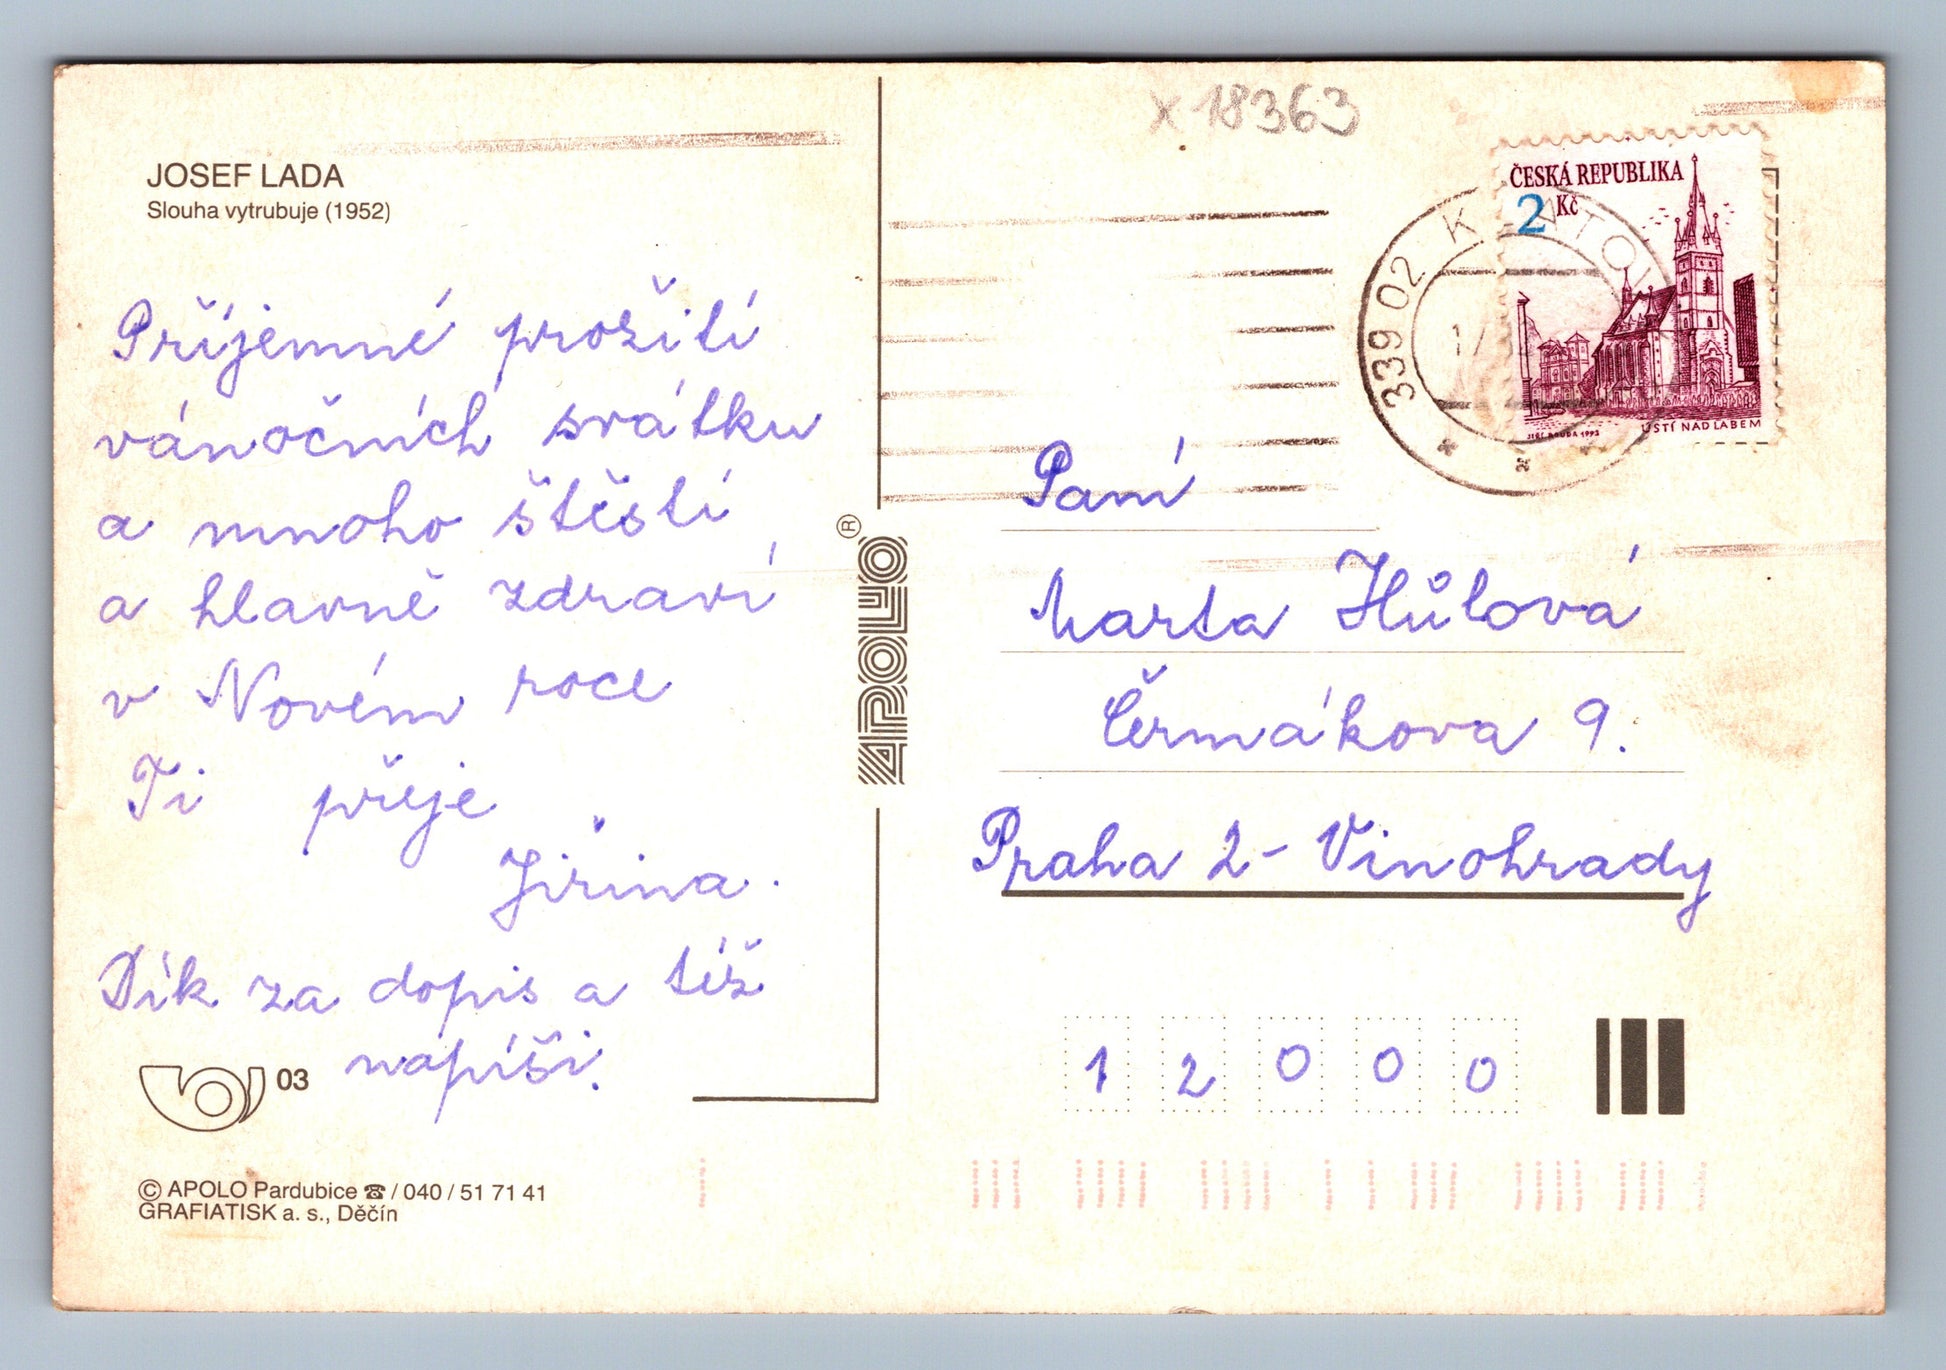 x 18363
JOSEF LADA
Slouha vytrubuje (1952)
Příjemné prožití
vánočních svátku
a mnoho štěstí
a hlavně zdraví
v Novém roce
Ti přeje
Jiřina.
Dík za dopis a též
napíši.
03
© APOLO Pardubice ☎ / 040 / 51 71 41
GRAFIATISK a. s., Děčín
® APOLLO
ČESKÁ REPUBLIKA
2 Kč
JIŘÍ BOUDA 1993
ÚSTÍ NAD LABEM
339 02
Paní
Marta Hůlová
Čermákova 9.
Praha 2 - Vinohrady
1 2 0 0 0